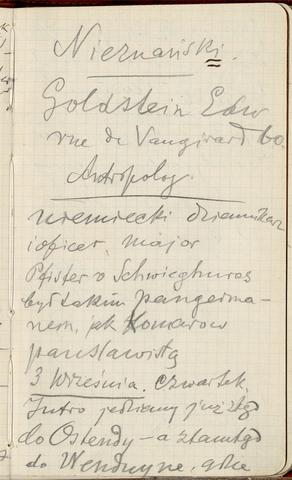 Nieznański.
Goldstein Edw
rue de Vaugirard 60.
Antropolog.
niemiecki dziennikarz
i oficer, major
Pfister v Schwieghuros
był takim pangerma-
nem, jak Komarow
panslawistą
3 Września. Czwartek.
Jutro jedziemy już stąd
do Ostendy – a stamtąd
do Wenduyne, gdzie